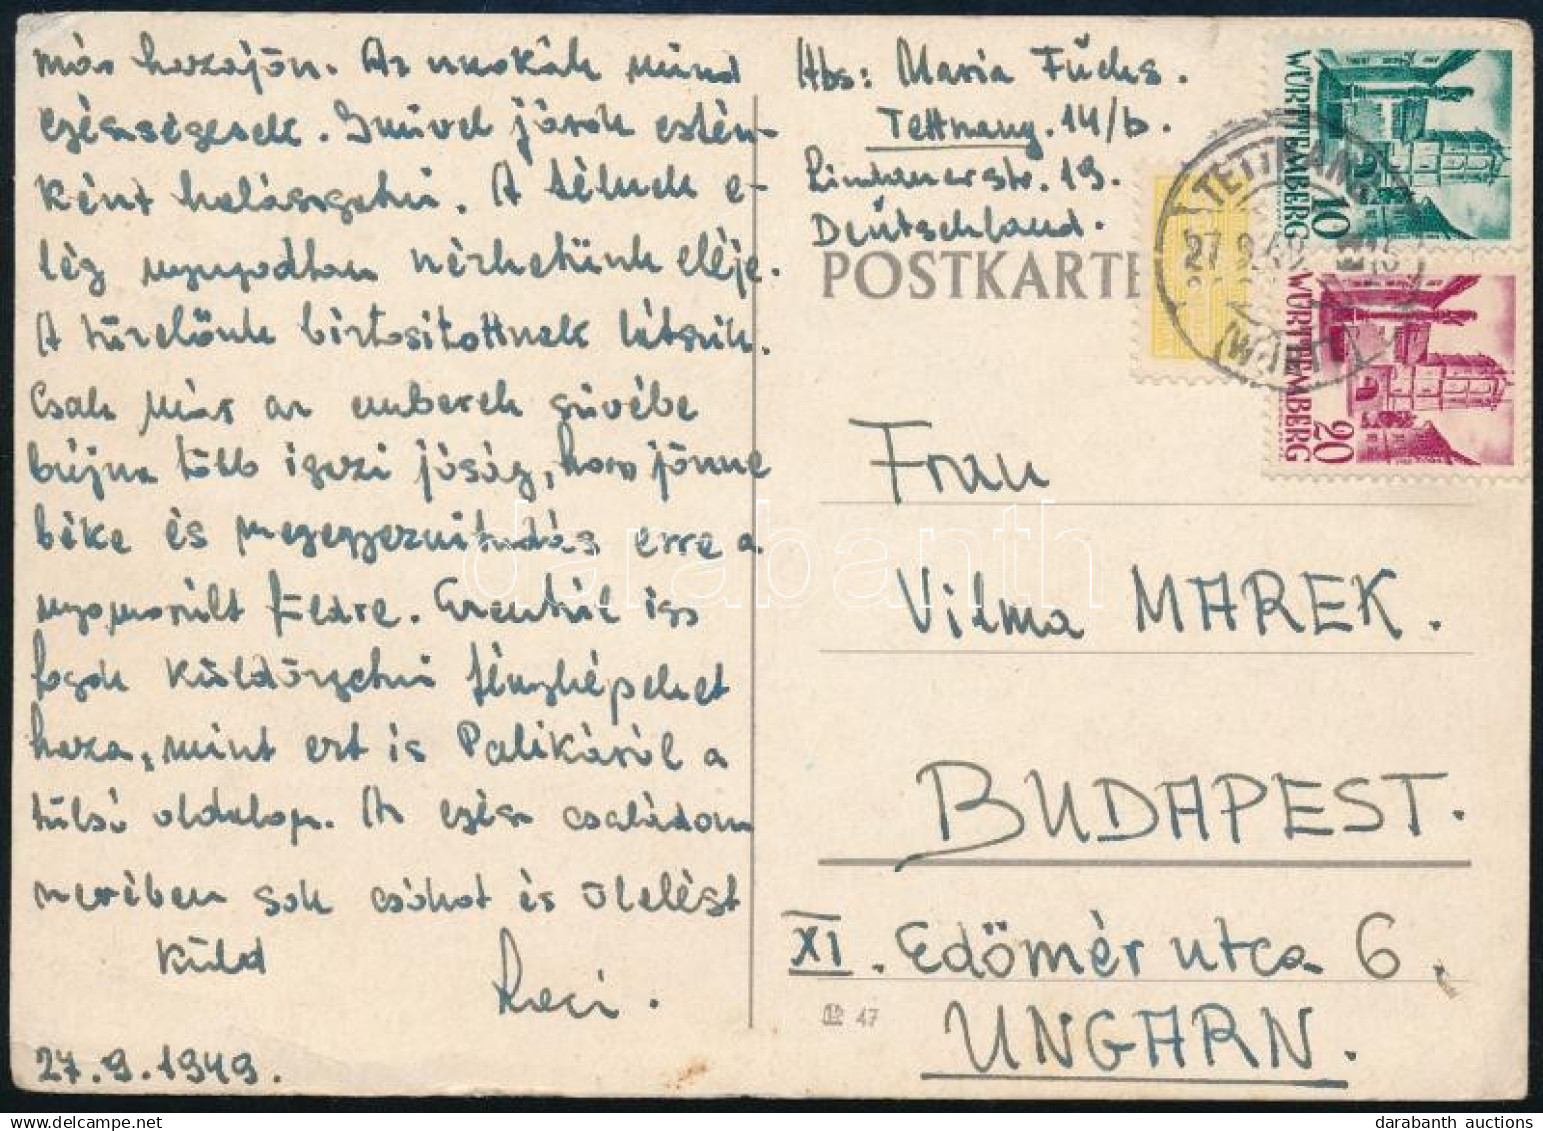 már hazajön. Az unokák mind
egészségesek. Imivel járok estén-
ként halászgatni. A télnek e-
lég nyugodtan nézhetünk eléje.
A tüzelőnk biztosítottnak látszik.
Csak már az emberek szívébe
bújna több igazi jóság, hozzájönne
béke és megegyezni tudás erre a
nyomorúlt Földre. Ezentúl így
fogok küldözgetni fényképeket
haza, mint ezt is Palikáról a
túlsó oldalon. Az egész családom
nevében sok csókot és ölelést
küld
27.9.1949.
Abs: Maria Füchs.
Tettnang. 14/b.
Lindauerstr. 19.
Deutschland.
POSTKARTE
WÜRTTEMBERG
10
WÜRTTEMBERG
20
TETTNANG
27 9 49
(WÜRTT)
Frau
Vilma MAREK.
BUDAPEST.
XI. Edömér utca 6.
UNGARN.
47
darabanth
darabanth auctions